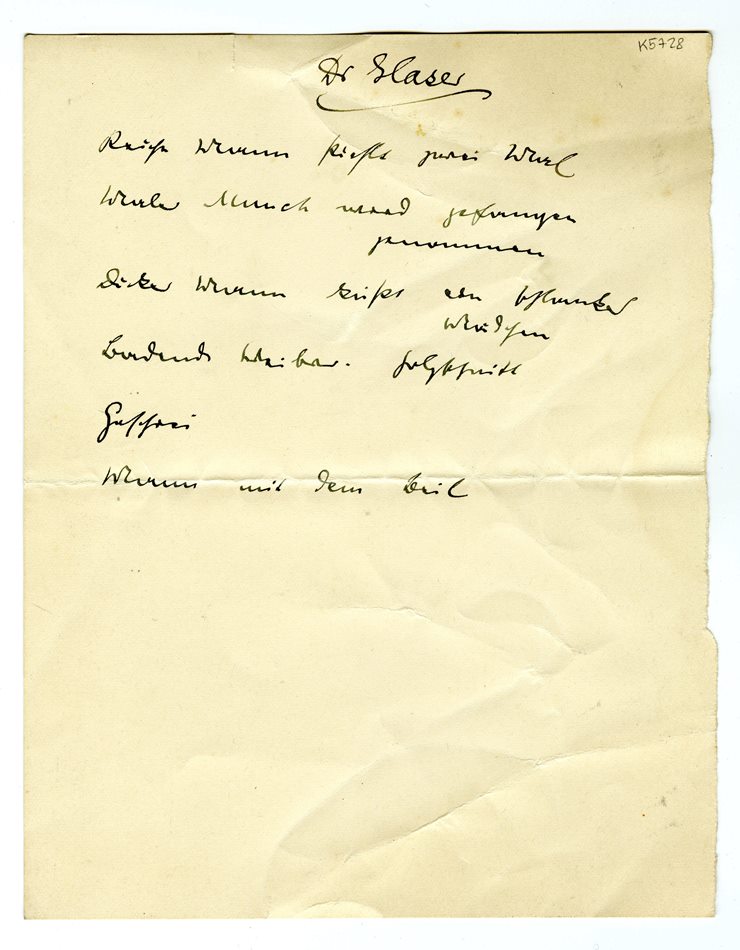 K5728
Dr Glaser
Mann zwei Mal
Maler Munch wird gefangen
genommen
Dicker Mann küßt ein schlankes
Mädchen
Badende Weiber. Holzschnitt
Geschrei
Mann mit dem Beil